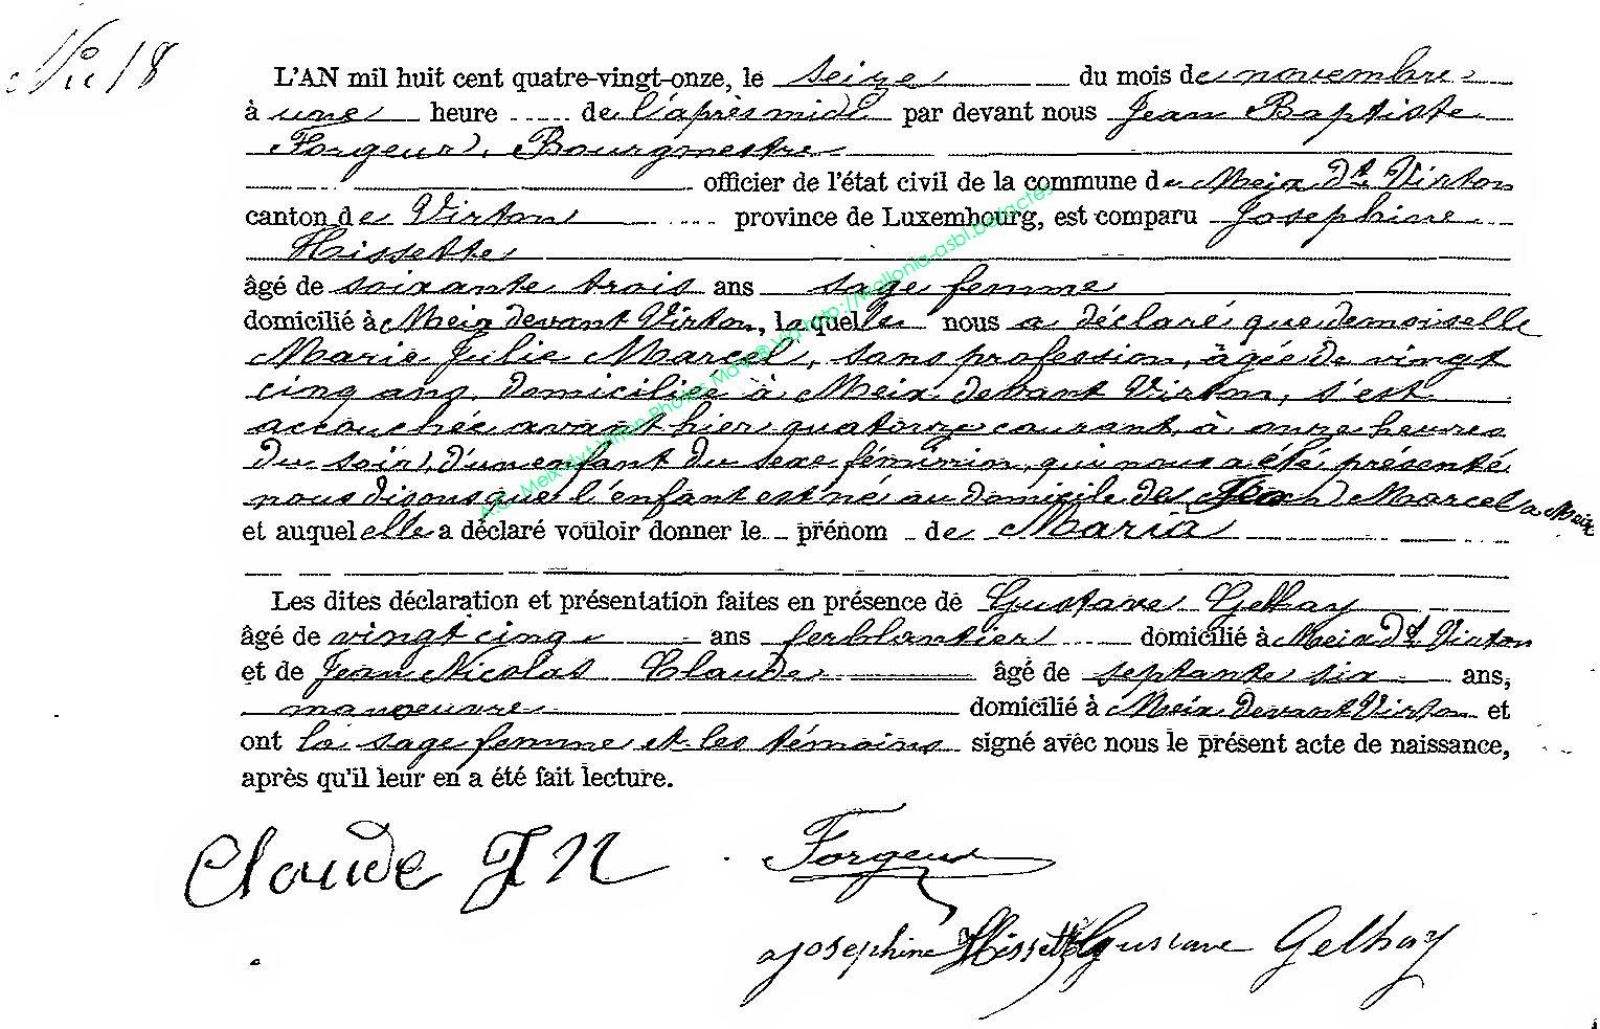 No 18
L'AN mil huit cent quatre-vingt-onze, le seize du mois de novembre
à une heure de l'après midi par devant nous Jean Baptiste
Forgeur, Bourgmestre
officier de l'état civil de la commune de Meix Dt Virton
canton de Virton province de Luxembourg, est comparu Josephine
Hissette
âgé de soixante trois ans sage femme
domicilié à Meix devant Virton, laquelle nous a déclaré que demoiselle
Marie Julie Marcel, sans profession, âgée de vingt
cinq ans, domiciliée à Meix devant Virton, s'est
accouchée avant hier quatorze courant, à onze heures
du soir, d'un enfant du sexe féminin, qui nous a été présenté
nous disons que l'enfant est né au domicile de Jean Marcel a Meix
et auquel elle a déclaré vouloir donner le prénom de Maria
Les dites déclaration et présentation faites en présence de Gustave Gelhay
âgé de vingt cinq ans ferblantier domicilié à Meix Dt Virton
et de Jean Nicolas Claude âgé de septante six ans,
manoeuvre domicilié à Meix devant Virton et
ont la sage femme et les témoins signé avec nous le présent acte de naissance,
après qu'il leur en a été fait lecture.
Claude J N Forgeur
Josephine Hissette Gustave Gelhay